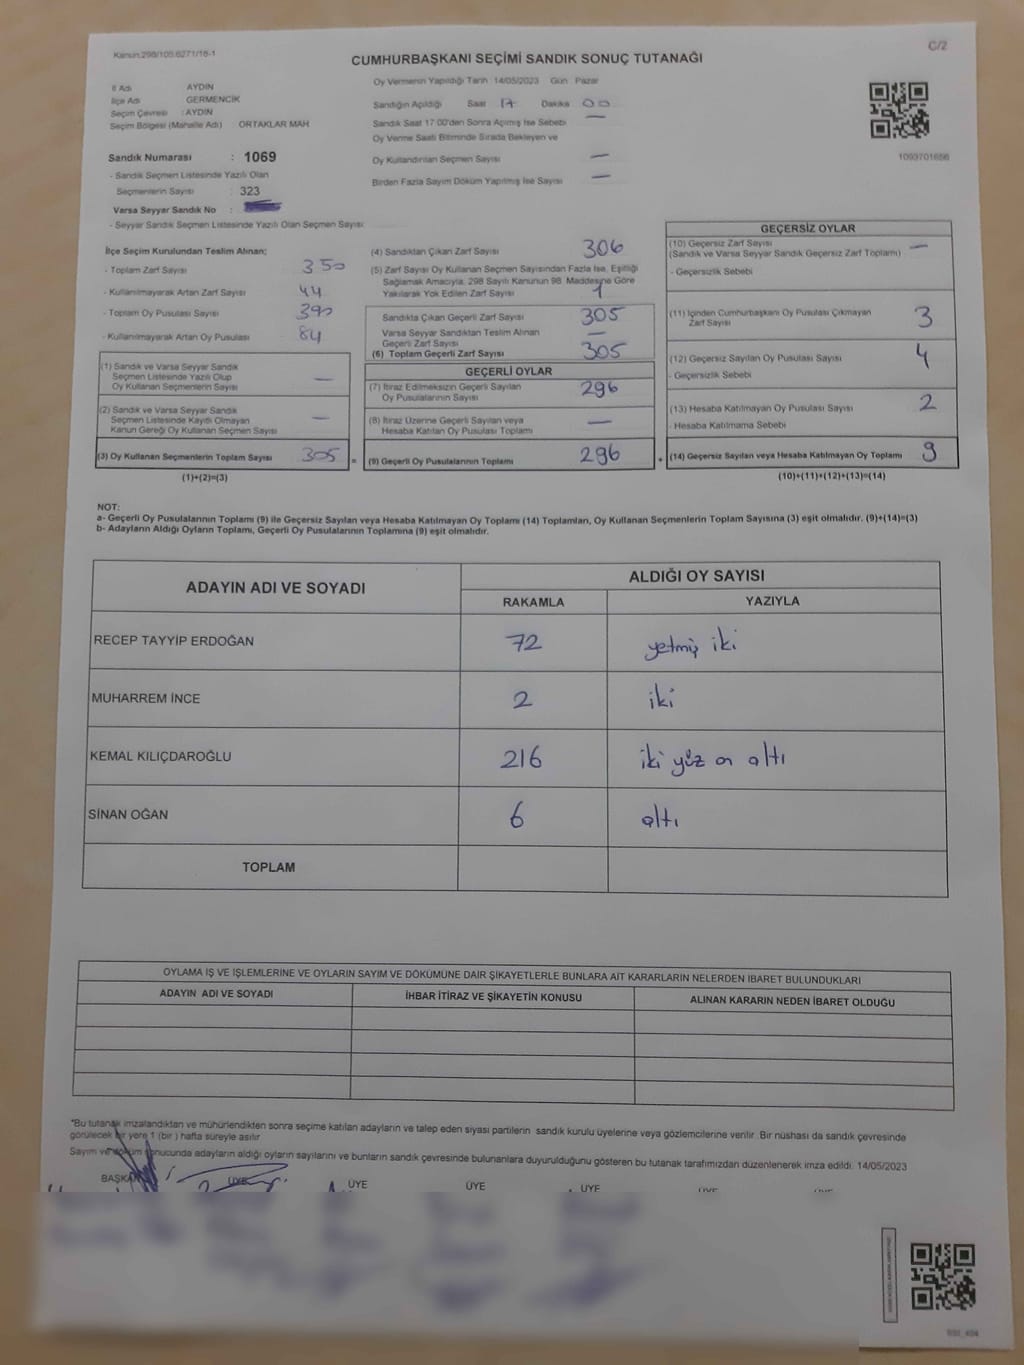 Kanun:298/105.6271/16-1
C/2
CUMHURBAŞKANI SEÇİMİ SANDIK SONUÇ TUTANAĞI
İl Adı AYDIN
İlçe Adı GERMENCİK
Seçim Çevresi : AYDIN
Seçim Bölgesi (Mahalle Adı) ORTAKLAR MAH
Sandık Numarası : 1069
- Sandık Seçmen Listesinde Yazılı Olan
Seçmenlerin Sayısı : 323
Varsa Seyyar Sandık No :
- Seyyar Sandık Seçmen Listesinde Yazılı Olan Seçmen Sayısı:
Oy Vermenin Yapıldığı Tarih :14/05/2023 Gün : Pazar
Sandığın Açıldığı Saat 17 Dakika 00
Sandık Saat 17:00'den Sonra Açılmış İse Sebebi —
Oy Verme Saati Bitiminde Sırada Bekleyen ve
Oy Kullandırılan Seçmen Sayısı —
Birden Fazla Sayım Döküm Yapılmış İse Sayısı —
1093701656
İlçe Seçim Kurulundan Teslim Alınan;
- Toplam Zarf Sayısı 350
- Kullanılmayarak Artan Zarf Sayısı 44
- Toplam Oy Pusulası Sayısı 390
- Kullanılmayarak Artan Oy Pusulası 84
(1) Sandık ve Varsa Seyyar Sandık
Seçmen Listesinde Yazılı Olup
Oy Kullanan Seçmenlerin Sayısı —
(2) Sandık ve Varsa Seyyar Sandık
Seçmen Listesinde Kayıtlı Olmayan
Kanun Gereği Oy Kullanan Seçmen Sayısı —
(3) Oy Kullanan Seçmenlerin Toplam Sayısı 305
(1)+(2)=(3)
(4) Sandıktan Çıkan Zarf Sayısı 306
(5) Zarf Sayısı Oy Kullanan Seçmen Sayısından Fazla İse, Eşitliği
Sağlamak Amacıyla, 298 Sayılı Kanunun 98. Maddesine Göre
Yakılarak Yok Edilen Zarf Sayısı 1
Sandıkta Çıkan Geçerli Zarf Sayısı 305
Varsa Seyyar Sandıktan Teslim Alınan
Geçerli Zarf Sayısı —
(6) Toplam Geçerli Zarf Sayısı 305
GEÇERLİ OYLAR
(7) İtiraz Edilmeksizin Geçerli Sayılan
Oy Pusulalarının Sayısı 296
(8) İtiraz Üzerine Geçerli Sayılan veya
Hesaba Katılan Oy Pusulası Toplamı —
= (9) Geçerli Oy Pusulalarının Toplamı 296
GEÇERSİZ OYLAR
(10) Geçersiz Zarf Sayısı —
(Sandık ve Varsa Seyyar Sandık Geçersiz Zarf Toplamı)
- Geçersizlik Sebebi
(11) İçinden Cumhurbaşkanı Oy Pusulası Çıkmayan
Zarf Sayısı 3
(12) Geçersiz Sayılan Oy Pusulası Sayısı 4
- Geçersizlik Sebebi
(13) Hesaba Katılmayan Oy Pusulası Sayısı 2
- Hesaba Katılmama Sebebi
+ (14) Geçersiz Sayılan veya Hesaba Katılmayan Oy Toplamı 9
(10)+(11)+(12)+(13)=(14)
NOT:
a- Geçerli Oy Pusulalarının Toplamı (9) ile Geçersiz Sayılan veya Hesaba Katılmayan Oy Toplamı (14) Toplamları, Oy Kullanan Seçmenlerin Toplam Sayısına (3) eşit olmalıdır. (9)+(14)=(3)
b- Adayların Aldığı Oyların Toplamı, Geçerli Oy Pusulalarının Toplamına (9) eşit olmalıdır.
ADAYIN ADI VE SOYADI ALDIĞI OY SAYISI
RAKAMLA YAZIYLA
RECEP TAYYİP ERDOĞAN 72 yetmiş iki
MUHARREM İNCE 2 iki
KEMAL KILIÇDAROĞLU 216 iki yüz on altı
SİNAN OĞAN 6 altı
TOPLAM
OYLAMA İŞ VE İŞLEMLERİNE VE OYLARIN SAYIM VE DÖKÜMÜNE DAİR ŞİKAYETLERLE BUNLARA AİT KARARLARIN NELERDEN İBARET BULUNDUKLARI
ADAYIN ADI VE SOYADI İHBAR İTİRAZ VE ŞİKAYETİN KONUSU ALINAN KARARIN NEDEN İBARET OLDUĞU
*Bu tutanak imzalandıktan ve mühürlendikten sonra seçime katılan adayların ve talep eden siyasi partilerin sandık kurulu üyelerine veya gözlemcilerine verilir. Bir nüshası da sandık çevresinde
görülecek bir yere 1 (bir ) hafta süreyle asılır
Sayım ve döküm sonucunda adayların aldığı oyların sayılarını ve bunların sandık çevresinde bulunanlara duyurulduğunu gösteren bu tutanak tarafımızdan düzenlenerek imza edildi. 14/05/2023
BAŞKAN ÜYE ÜYE ÜYE ÜYE ÜYE